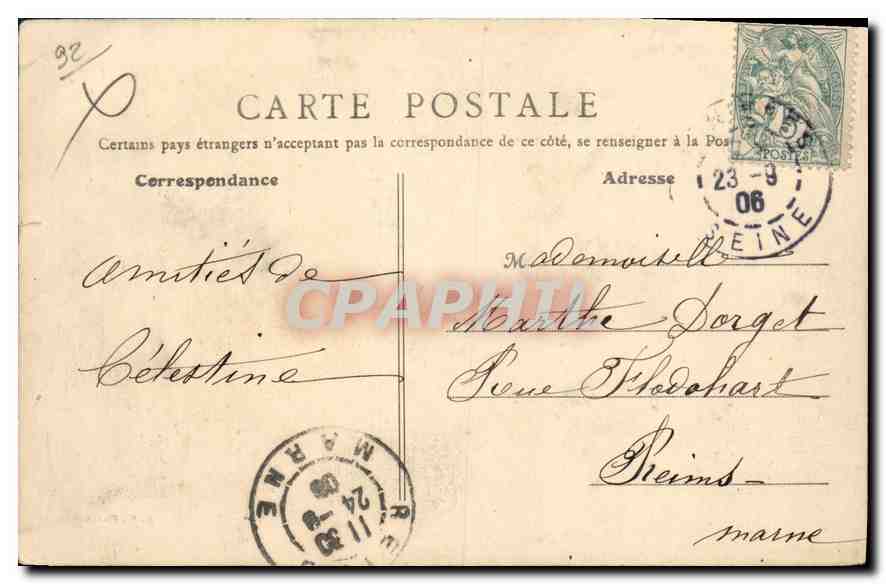 92
CARTE POSTALE
Certains pays étrangers n'acceptent pas la correspondance de ce côté, se renseigner à la Pos
Correspondance
Adresse
5
POSTES
23 -9
06
SEINE
amitiés de
Célestine
Mademoiselle
Marthe Dorget
Rue Flodohart
Reims
marne
CPAPHIL
MARNE
11 30
24 -9
06